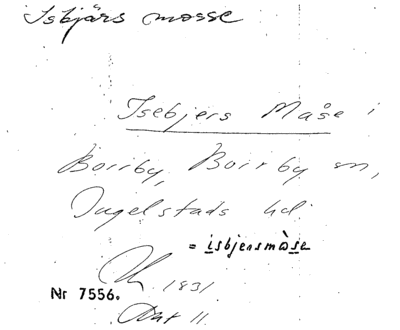 Isbjärs mosse
Isebjers Måse i
Borrby, Borrby sn,
Ingelstads hd.
= isbjersmåse
1831
Nr 7556.
Akt 11